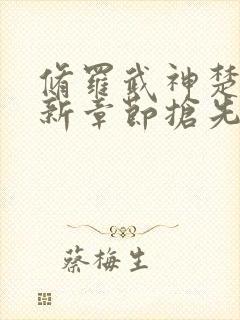 脩羅武神楚
新章節搶先
蔡梅生